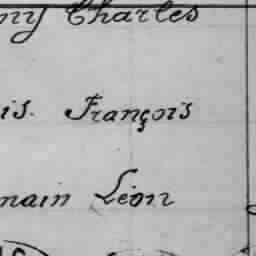 ny Charles
is. François
main Léon